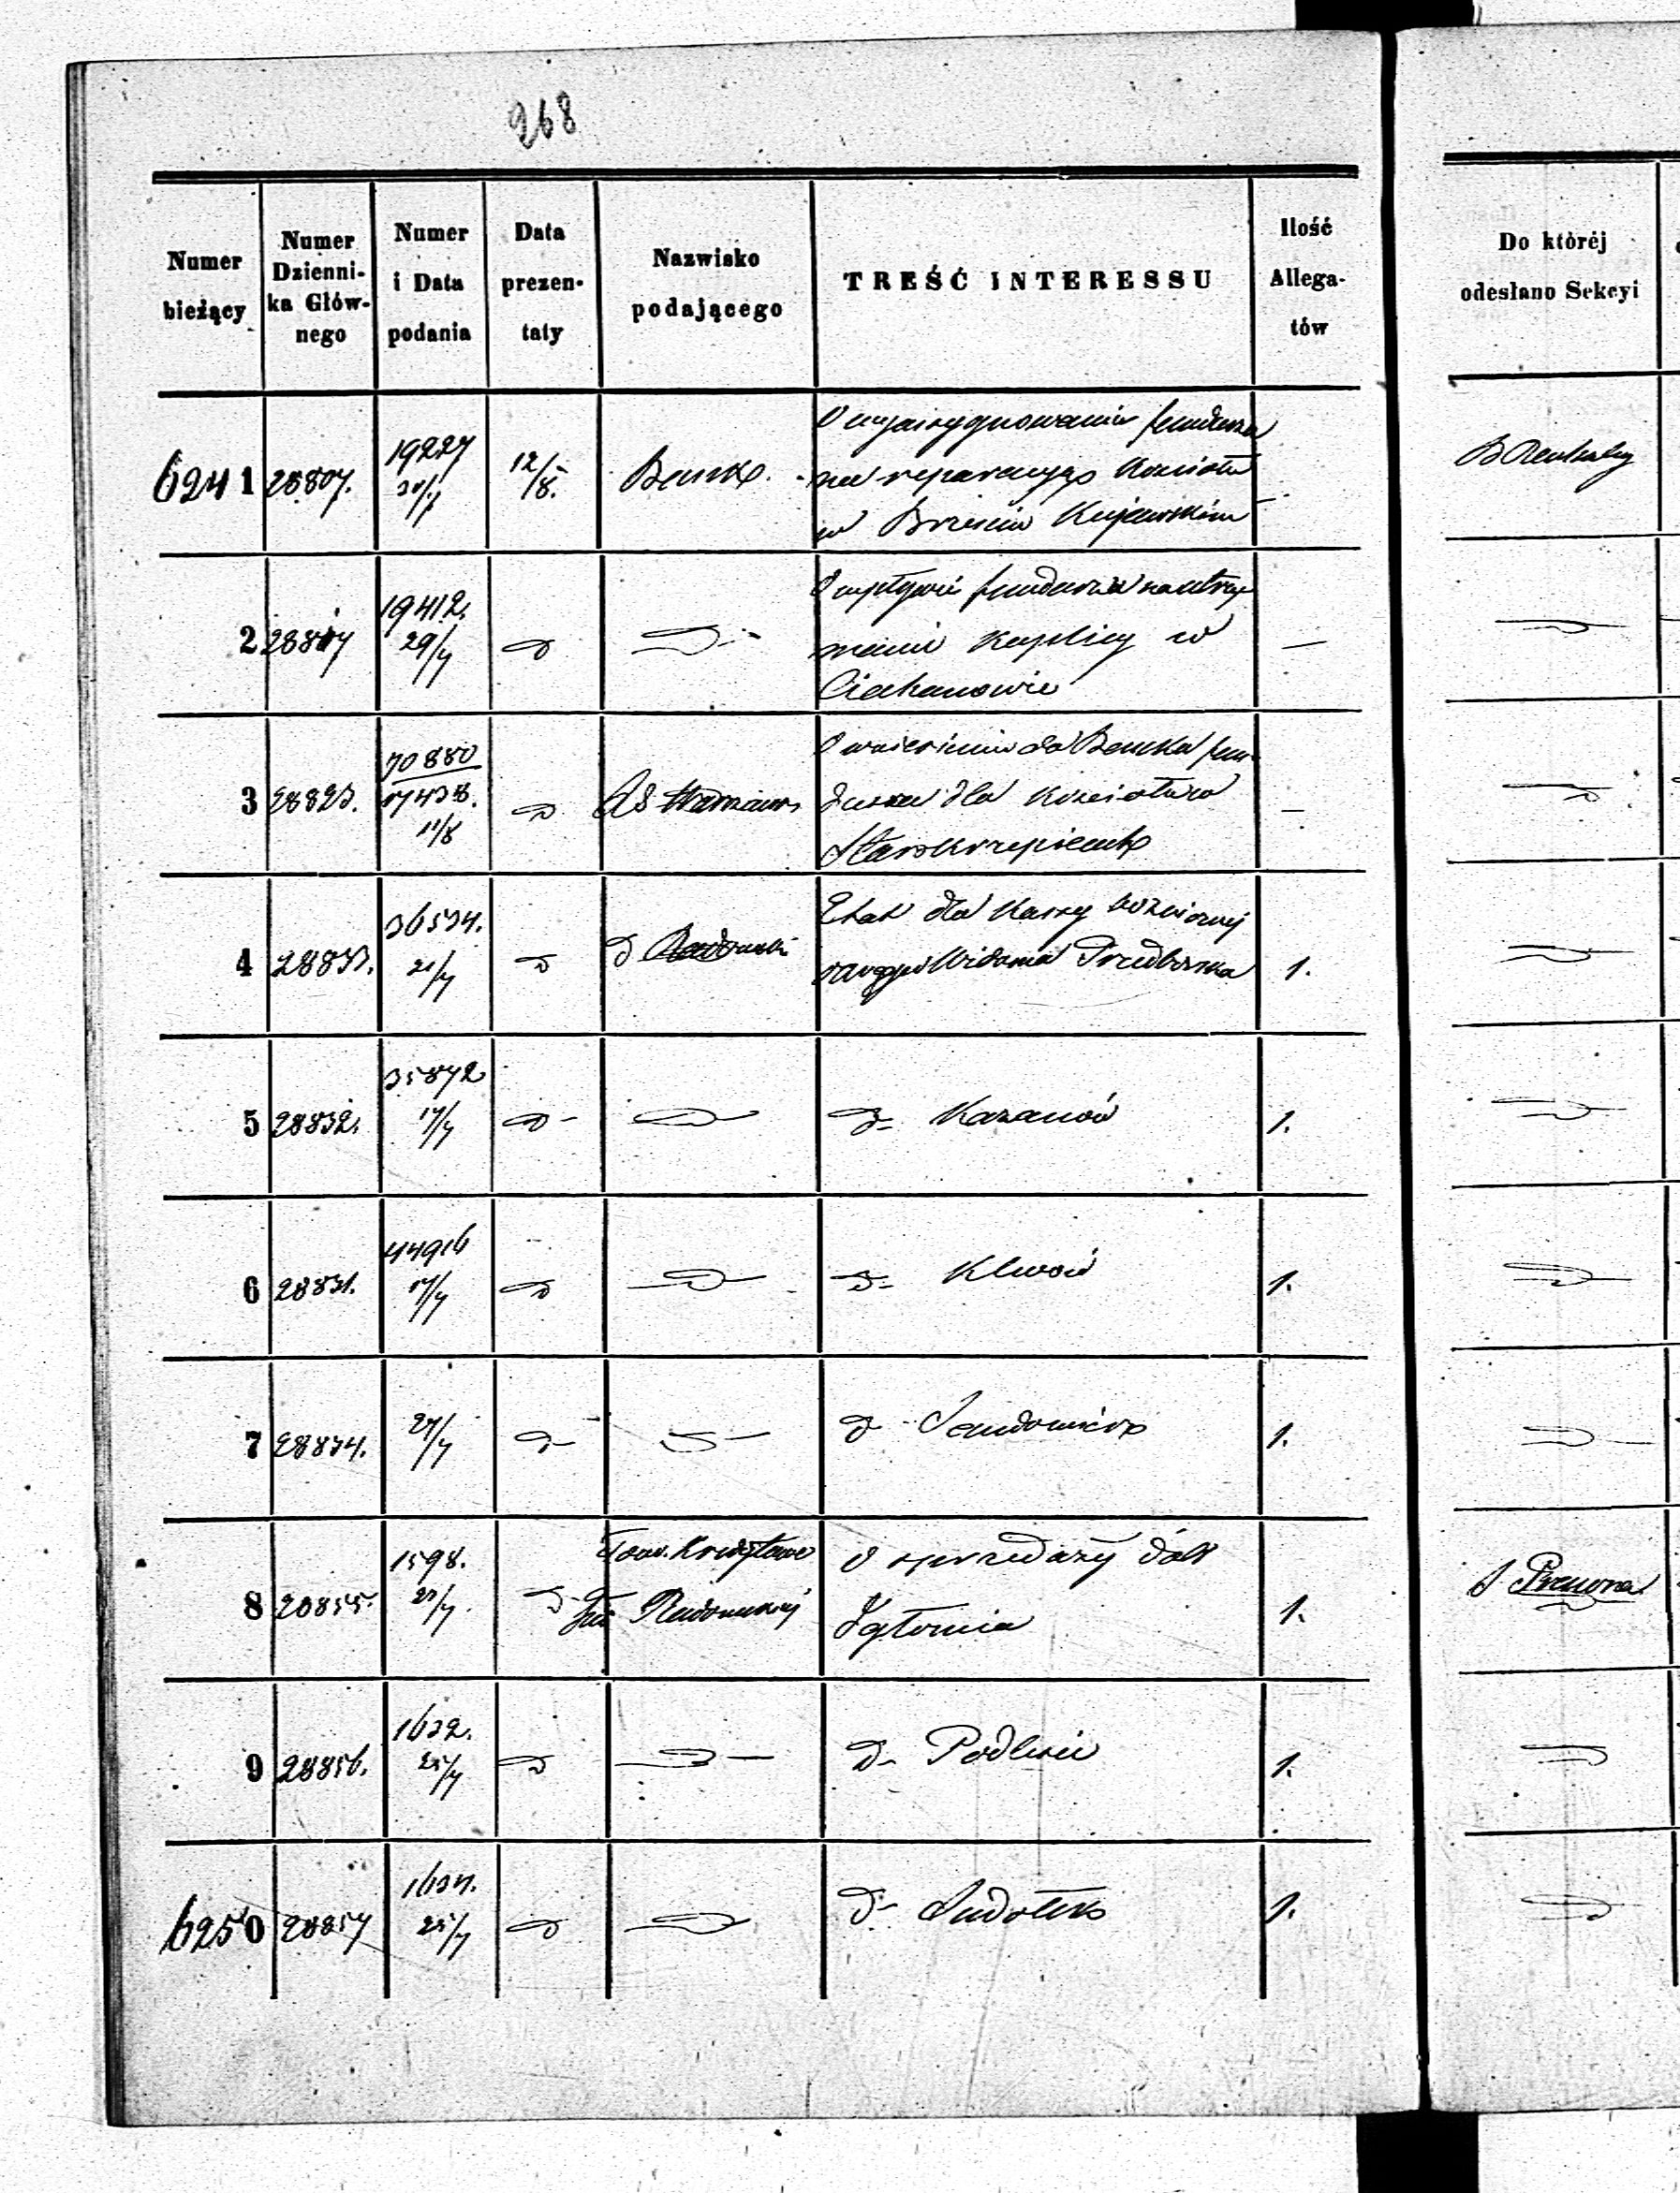 268
Numer bieżący
Numer Dzienni- ka Głów- nego
Numer i Data podania
Data prezen- taty
Nazwisko podającego
TREŚĆ INTERESSU
Ilość Allega- tów
Do któréj odesłano Sekcyi
6241 28807. 19227 12/8. Bank O wyasygnowaniu funduszu
na reparacyą Kościoła
w Brześciu Kujawskim
2 28807 19412. 29/7 do O wpływie funduszu na utrzy
manie Kaplicy w
Ciechanowie
3 28823. 70880 17438. 11/8 do O wniesieniu do Banku fun
duszu dla Kościoła w
Starokrzepicach
4 28833. 36534. 21/7 do D Radomski Etat dla Kassy
Przedborska 1.
5 28832. 35872 17/7 do d- Kazanów 1.
6 28831. 44916 17/7 do d- Klwów 1.
7 28834. 27/7 do d- Sandomierz 1.
8 28855. 1598. do Tow. Kredytowe
Gub Radomskiej
O sprzedaży dóbr
Igłomia 1.
9 28856. 1632. 25/7 do d- Podlesie 1.
6250 28857 1634. 25/7 do d- Sudołek 1.